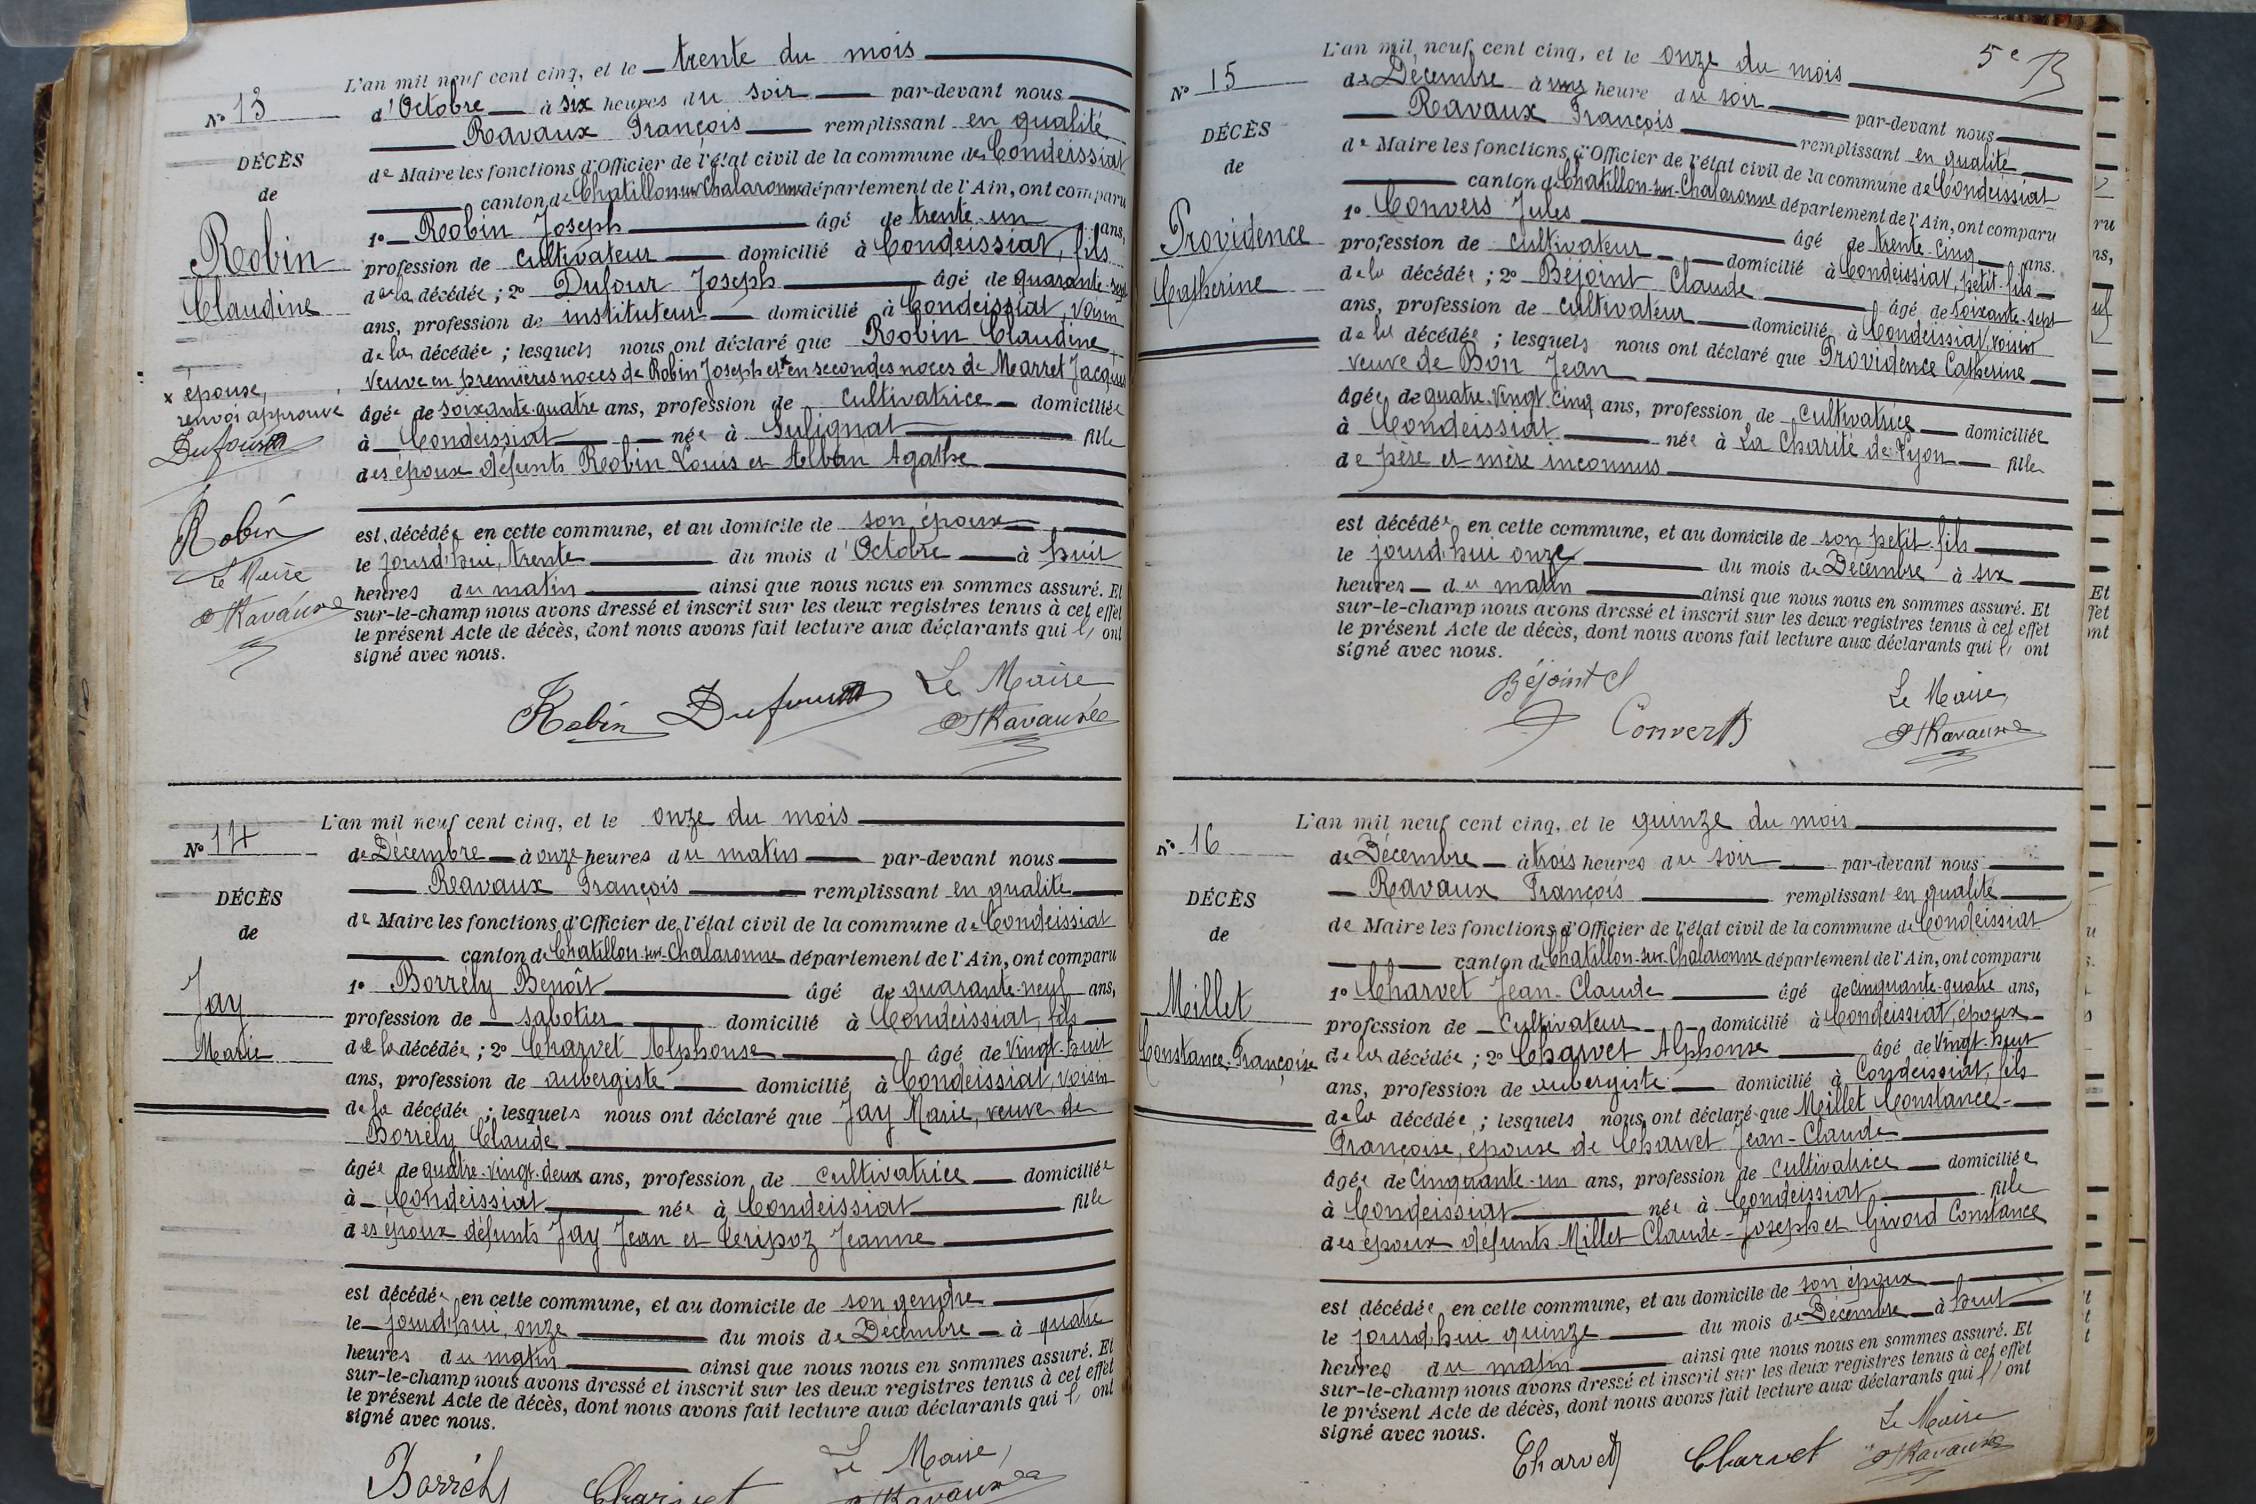 L'an mil neuf cent cinq, et le trente du mois
N° 13
d'Octobre à six heures du soir par-devant nous
Ravaux François remplissant en qualité
DÉCÈS
de Maire les fonctions d'Officier de l'état civil de la commune de Condeissiat
de
canton de Chatillon-sur-Chalaronne département de l'Ain, ont comparu
Robin
Claudine
1° Robin Joseph âgé de trente-un ans,
profession de cultivateur domicilié à Condeissiat, fils
de la décédée ; 2° Dufour Joseph âgé de quarante-sept
ans, profession de instituteur domicilié à Condeissiat, voisin
de la décédée ; lesquels nous ont déclaré que Robin Claudine
veuve en premières noces de Robin Joseph et x en secondes noces de Marret Jacques
x épouse,
renvoi approuvé
Dufour
âgée de soixante-quatre ans, profession de cultivatrice domiciliée
à Condeissiat née à Sulignat fille
des époux défunts Robin Louis et Alban Agathe
Robin
Le Maire
Ravaux
est décédée en cette commune, et au domicile de son époux
le jourd'hui, trente du mois d'Octobre à huit
heures du matin ainsi que nous nous en sommes assuré. Et
sur-le-champ nous avons dressé et inscrit sur les deux registres tenus à cet effet
le présent Acte de décès, dont nous avons fait lecture aux déclarants qui l' ont
signé avec nous.
Robin Dufour Le Maire
Ravaux
L'an mil neuf cent cinq, et le onze du mois
N° 14
de Décembre à onze heures du matin par-devant nous
Ravaux François remplissant en qualité
DÉCÈS
de Maire les fonctions d'Officier de l'état civil de la commune de Condeissiat
de
canton de Chatillon-sur-Chalaronne département de l'Ain, ont comparu
Jay
Marie
1° Borrély Benoît âgé de quarante-neuf ans,
profession de sabotier domicilié à Condeissiat, fils
de la décédée ; 2° Charvet Alphonse âgé de vingt-huit
ans, profession de aubergiste domicilié à Condeissiat, voisin
de la décédée ; lesquels nous ont déclaré que Jay Marie, veuve de
Borrély Claude
âgée de quatre-vingt-deux ans, profession de cultivatrice domiciliée
à Condeissiat née à Condeissiat fille
des époux défunts Jay Jean et Jeanne
est décédée en cette commune, et au domicile de son gendre
le jourd'hui, onze du mois de Décembre à quatre
heures du matin ainsi que nous nous en sommes assuré. Et
sur-le-champ nous avons dressé et inscrit sur les deux registres tenus à cet effet
le présent Acte de décès, dont nous avons fait lecture aux déclarants qui l' ont
signé avec nous.
Borrély Charvet Le Maire,
Ravaux
5e
L'an mil neuf cent cinq, et le onze du mois
N° 15
de Décembre à une heure du soir par-devant nous
Ravaux François remplissant en qualité
DÉCÈS
de Maire les fonctions d'Officier de l'état civil de la commune de Condeissiat
de
canton de Chatillon-sur-Chalaronne département de l'Ain, ont comparu
Providence
Catherine
1° Convers Jules âgé de trente-cinq ans.
profession de cultivateur domicilié à Condeissiat, petit-fils
de la décédée ; 2° Béjoint Claude âgé de soixante-sept
ans, profession de cultivateur domicilié à Condeissiat, voisin
de la décédée ; lesquels nous ont déclaré que Providence Catherine
veuve de Bon Jean
âgée de quatre-vingt-cinq ans, profession de cultivatrice domiciliée
à Condeissiat née à La Charité de Lyon fille
de père et mère inconnus
est décédée en cette commune, et au domicile de son petit-fils
le jourd'hui onze du mois de Décembre à six
heures du matin ainsi que nous nous en sommes assuré. Et
sur-le-champ nous avons dressé et inscrit sur les deux registres tenus à cet effet
le présent Acte de décès, dont nous avons fait lecture aux déclarants qui l' ont
signé avec nous.
Béjoint Cl
Convers
Le Maire,
Ravaux
L'an mil neuf cent cinq, et le quinze du mois
N° 16
de Décembre à trois heures du soir par-devant nous
Ravaux François remplissant en qualité
DÉCÈS
de Maire les fonctions d'Officier de l'état civil de la commune de Condeissiat
de
canton de Chatillon-sur-Chalaronne département de l'Ain, ont comparu
Millet
Constance-Françoise
1° Charvet Jean-Claude âgé de cinquante-quatre ans,
profession de cultivateur domicilié à Condeissiat, époux
de la décédée ; 2° Charvet Alphonse âgé de vingt-huit
ans, profession de aubergiste domicilié à Condeissiat, fils
de la décédée ; lesquels nous ont déclaré que Millet Constance-
Françoise, épouse de Charvet Jean-Claude
âgée de cinquante-un ans, profession de cultivatrice domiciliée
à Condeissiat née à Condeissiat fille
des époux défunts Millet Claude-Joseph et Givord Constance
est décédée en cette commune, et au domicile de son époux
le jourd'hui quinze du mois de Décembre à huit
heures du matin ainsi que nous nous en sommes assuré. Et
sur-le-champ nous avons dressé et inscrit sur les deux registres tenus à cet effet
le présent Acte de décès, dont nous avons fait lecture aux déclarants qui l' ont
signé avec nous.
Charvet Charvet Le Maire
Ravaux